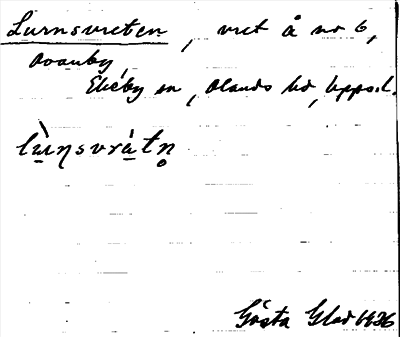 Lurnsvreten, vret å no 6,
Ekeby sn, Olands hd, Uppsal.
lùṇsvràtn̥
Gösta Glad 1936